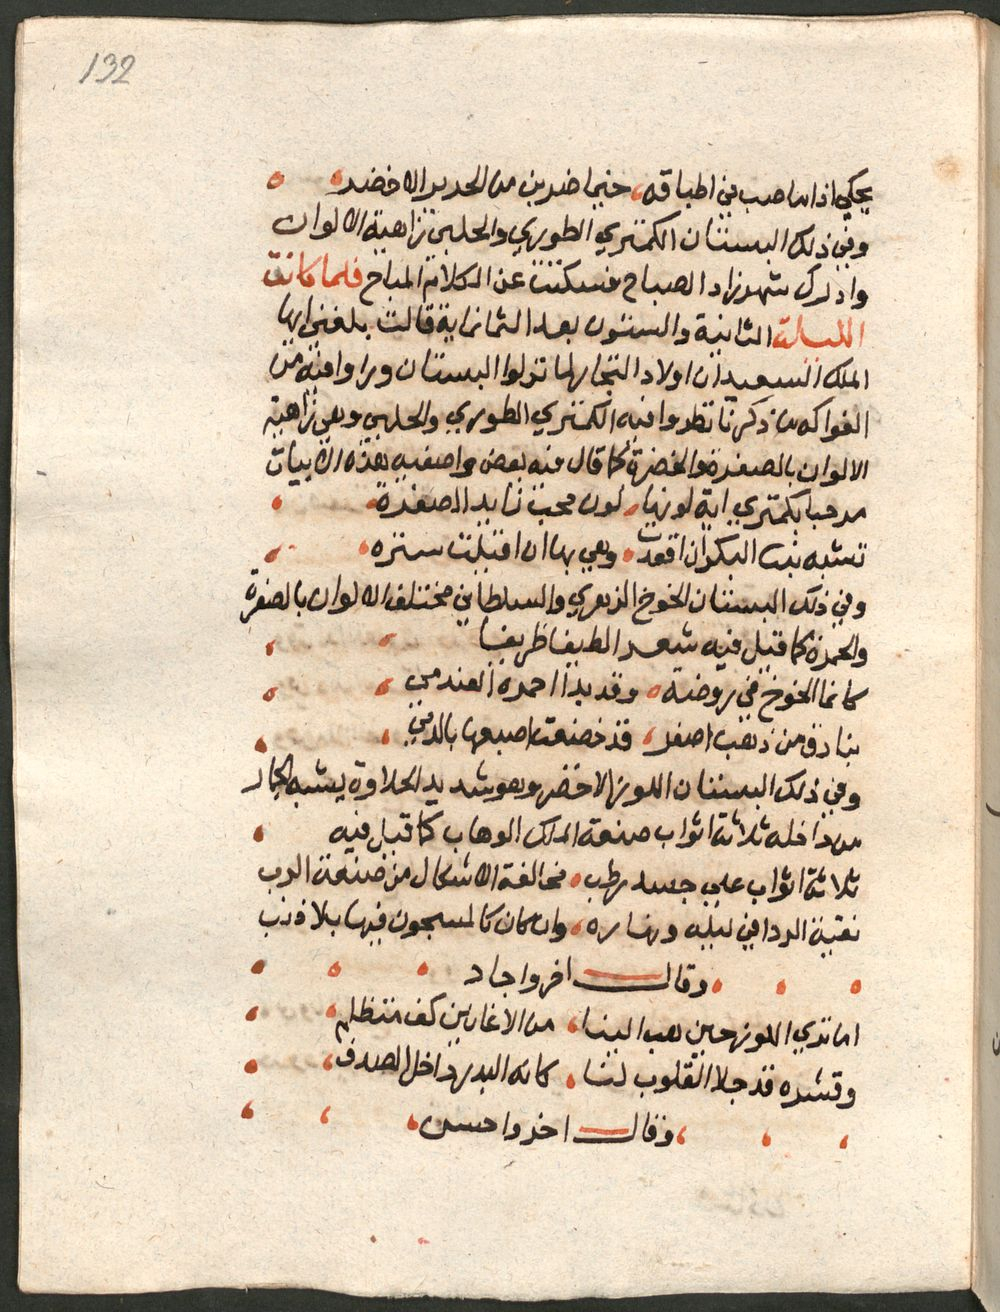 132
يحكي اذا ما صب في اطباقه خيما ضربن من الحرير الاخضر
وفي ذلك البستان الكمتري الطوري والحلبي زاهية الالوان
وادرك شهرزاد الصباح فسكتت عن الكلام المباح فلما كانت
الليلة الثانية والستون بعد الثمانماية قالت بلغني ايها
الملك السعيد ان اولاد التجار لما نزلوا البستان وراوا فيه من
الفواكه ما ذكرنا نظروا فيه الكمتري الطوري والحلبي وهي زاهية
الالوان بالصفرة والخضرة كما قال فيه بعض واصفيه بهذه الابيات
مرحبا بكمتري اية لونها لون محب زايد الصفرة
تشبه بنت البكر ان اقعدت وهي بها ان اقبلت ستره
وفي ذلك البستان الخوخ الزهري والسلطاني مختلف الالوان بالصفرة
والحمرة كما قيل فيه شعر الطيفا ظريفا
كانما الخوخ في روضة وقد بدا احمرة العندمي
بنادق من ذهب اصفر قد خضعت اصبعها بالدمي
وفي ذلك البستان اللوز الاخضر وهو شديد الحلاوة يشبه الجمار
من داخله ثلاثة اثواب صنعة الملك الوهاب كما قيل فيه
ثلاثة اثواب علي جسد رطب مخالفة الاشكال من صنعة الرب
نقية الردا في ليله ونهاره وان كان كالمسجون فيها بلا ذنب
وقال اخر واجاد
اما تري اللوز حين هب البنا من الاغارين كف منتظلم
وقشره قد جلا القلوب لنا كانه البدر داخل الصدف
وقال اخر واحسن